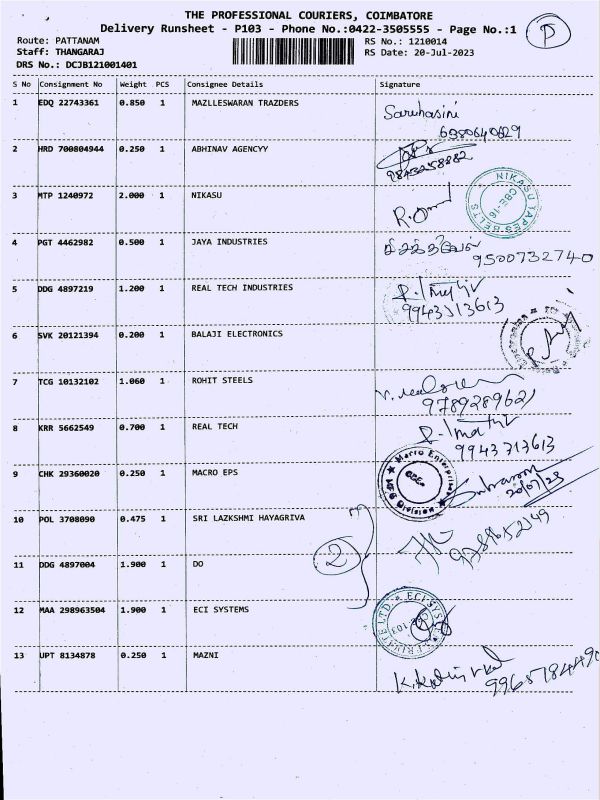 THE PROFESSIONAL COURIERS, COIMBATORE
Delivery Runsheet - P103 - Phone No.:0422-3505555 - Page No.:1
P
Route: PATTANAM
RS No.: 1210014
Staff: THANGARAJ
RS Date: 20-Jul-2023
DRS No.: DCJB121001401
S No Consignment No Weight PCS Consignee Details Signature
1 EDQ 22743361 0.850 1 MAZLLESWARAN TRAZDERS
2 HRD 700804944 0.250 1 ABHINAV AGENCYY
3 MTP 1240972 2.000 1 NIKASU
NIKASU TAPES-BELTS
CBE-16
4 PGT 4462982 0.500 1 JAYA INDUSTRIES
9500732740
5 DDG 4897219 1.200 1 REAL TECH INDUSTRIES
9943313613
6 SVK 20121394 0.200 1 BALAJI ELECTRONICS
7 TCG 10132102 1.060 1 ROHIT STEELS
9789289621
8 KRR 5662549 0.700 1 REAL TECH
9943313613
9 CHK 29360020 0.250 1 MACRO EPS
Macro Enterprises
MFG Division
20/07/23
10 POL 3708090 0.475 1 SRI LAZKSHMI HAYAGRIVA
2
11 DDG 4897004 1.900 1 DO
12 MAA 298963504 1.900 1 ECI SYSTEMS
13 UPT 8134878 0.250 1 MAZNI
9965784490